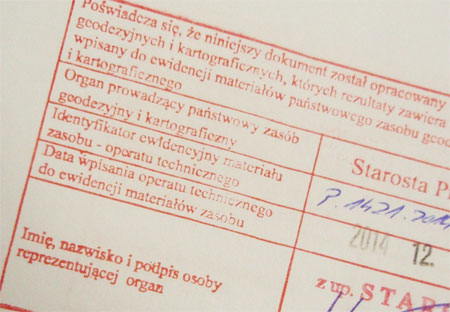 Poświadcza się, że niniejszy dokument został opracowany
geodezyjnych i kartograficznych, których rezultaty zawiera
wpisany do ewidencji materiałów państwowego zasobu
i kartograficznego
Organ prowadzący państwowy zasób
geodezyjny i kartograficzny
Starosta
Identyfikator ewidencyjny materiału
zasobu - operatu technicznego
P.1421.2014
Data wpisania operatu technicznego
do ewidencji materiałów zasobu
2014 12.
Imię, nazwisko i podpis osoby
reprezentującej organ
z up.